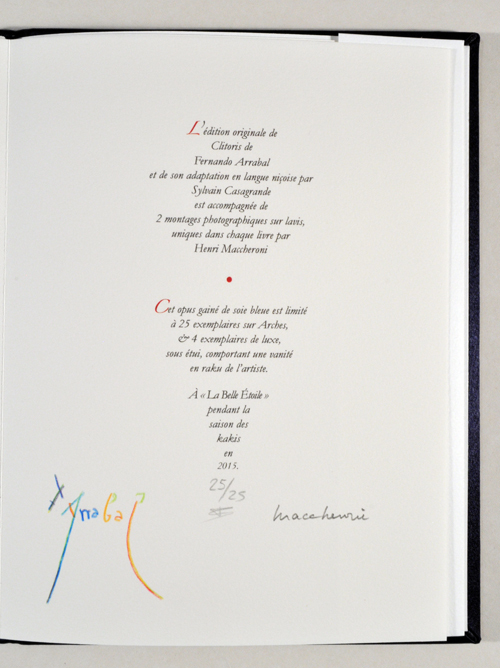 L'édition originale de
Clitoris de
Fernando Arrabal
et de son adaptation en langue niçoise par
Sylvain Casagrande
est accompagnée de
2 montages photographiques sur lavis,
uniques dans chaque livre par
Henri Maccheroni
Cet opus gainé de soie bleue est limité
à 25 exemplaires sur Arches,
& 4 exemplaires de luxe,
sous étui, comportant une vanité
en raku de l'artiste.
À « La Belle Étoile »
pendant la
saison des
kakis
en
2015.
25/25
Arrabal
Maccheroni